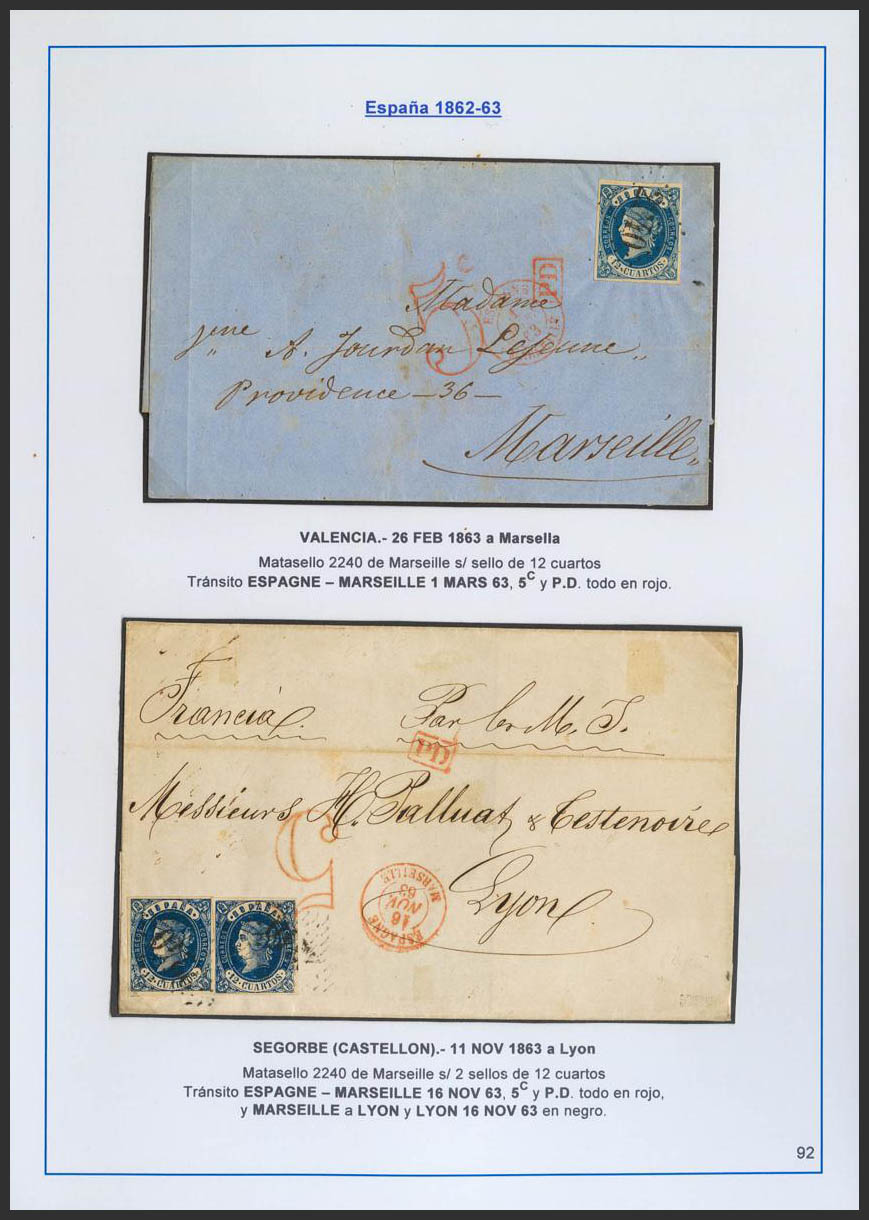 España 1862-63
ESPAÑA
CORREOS
12 CUARTOS
5c
PD
Madame
A. Jourdan Lejeune
Providence -36-
Marseille
VALENCIA.- 26 FEB 1863 a Marsella
Matasello 2240 de Marseille s/ sello de 12 cuartos
Tránsito ESPAGNE – MARSEILLE 1 MARS 63, 5C y P.D. todo en rojo.
Francia
PD
Messieurs H. Palluat & Testenoire
5
Lyon
ESPAGNE
16
NOV
63
MARSEILLE
ESPAÑA ESPAÑA
CORREOS CORREOS
12 CUARTOS 12 CUARTOS
SEGORBE (CASTELLON).- 11 NOV 1863 a Lyon
Matasello 2240 de Marseille s/ 2 sellos de 12 cuartos
Tránsito ESPAGNE – MARSEILLE 16 NOV 63, 5C y P.D. todo en rojo,
y MARSEILLE a LYON y LYON 16 NOV 63 en negro.
92